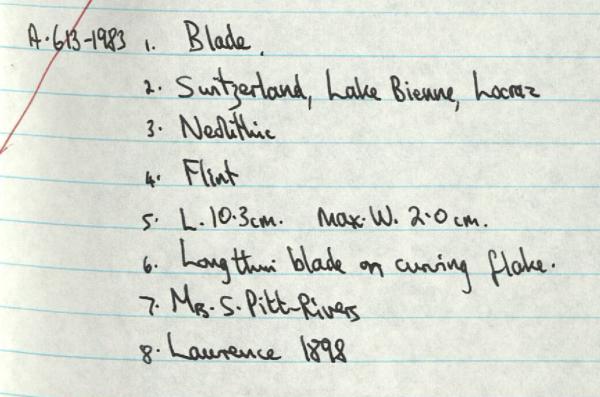 A.613-1983 1. Blade.
2. Switzerland, Lake Bienne, Locraz
3. Neolithic
4. Flint
5. L. 10.3cm. Max. W. 2.0 cm.
6. Long thin blade on curving flake.
7. Mrs. S. Pitt-Rivers
8. Lawrence 1898